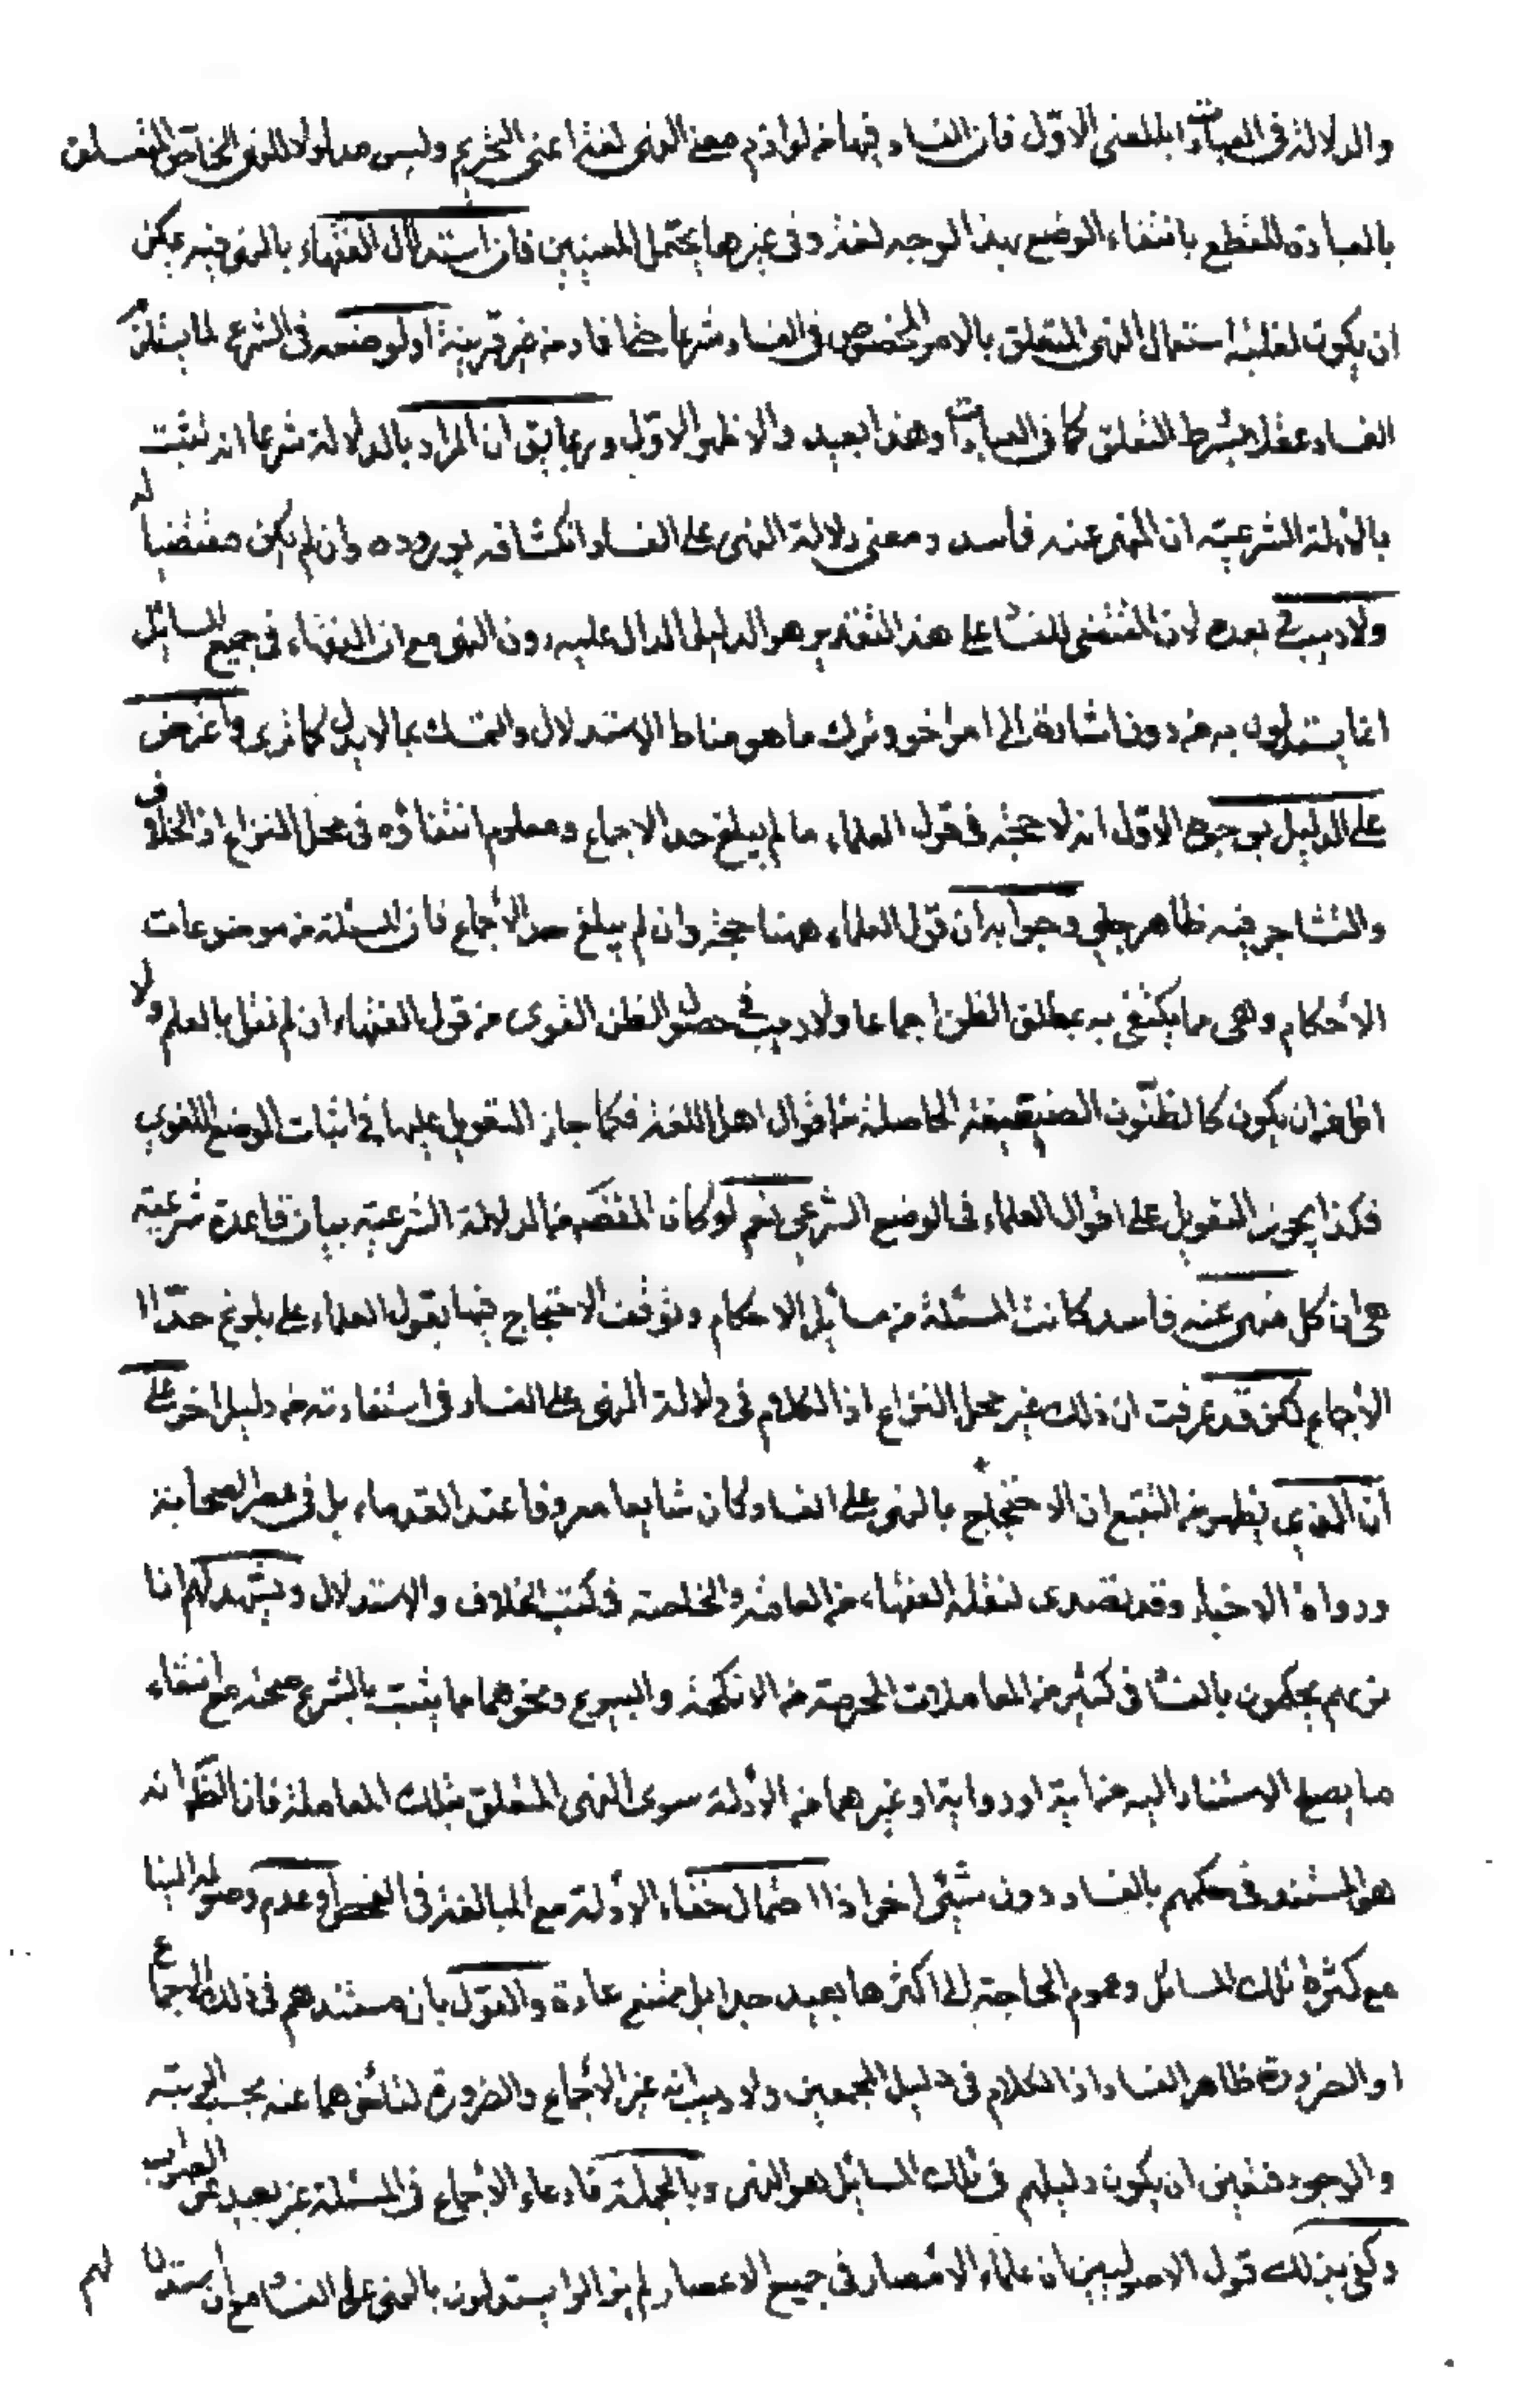 والدلالة فى العبادات بالمعنى الاوّل فان الفساد فيها من لوازم معنى النهى لغة اعنى التحريم وليس مدلولا للنهى الخاص المتعلق
بالعبادة للقطع بانتفاء الوضع بهذا الوجه لغة وفى غيرها يحتمل المعنيين فان استدلال الفقهاء بالنهى فيه يمكن
ان يكون لغلبة استعمال النهى المتعلق بالامر المخصوص فى الفساد شرعا من غير قرينة او لوضعه فى الشرع لما يستلزم
الفساد عقلا بشرط التعلق كما فى العبادات وهذا بعيد والاظهر الاوّل وربما يق ان المراد بالدلالة شرعا انه ثبت
بالادلة الشرعيّه ان المنهى عنه فاسد ومعنى دلالة النهى على الفساد انكشافه بوروده وان لم يكن مقتضيا له
ولا ريب فى بعده لان المقتضى للفسا على هذا التقدير هو الدليل الدال عليه دون النهى مع ان الفقهاء فى جميع المسائل
انما يستدلون به من دون اشارة الى امر اخر وترك ما هو مناط الاستدلال والتمسك بما لا يدل كما ترى واعترض
على الدليل بوجوه الاوّل انه لا حجة فى قول العلماء ما لم يبلغ حد الاجماع ومعلوم انتفاؤه فى محل النزاع اذ الخلاف
والتشاجر فيه ظاهر جلى وجوابه ان قول العلماء ههنا حجة وان لم يبلغ حد الأجماع فان المسئلة من موضوعات
الأحكام وهى مما يكتفى به بمطلق الظن اجماعا ولا ريب فى حصول الظن القوى من قول الفقهاء ان لم نقل بالعلم ولا
اقل من ان يكون كالظنون الضعيفة الحاصلة من اقوال اهل اللغة فكما جاز التعويل عليها فى اثبات الوضع اللغوى
فكذا يجوز التعويل على اقوال العلماء فى الوضع الشرعى نعم لو كان المقصد من الدلالة الشرعيّه بيان قاعدة شرعيّه
هى ان كل منهى عنه فاسد كانت المسئلة من مسائل الاحكام وتوقف الاحتجاج فيها بقول العلماء على بلوغ حدّ ا
الأجماع لكن قد عرفت ان ذلك غير محل النزاع اذ الكلام فى دلالة النهى على الفساد لا فى استفادته من دليل اخر على
ان الذى يظهر من التتبع ان الاحتجاج بالنهى على الفساد كان شايعا معروفا عند القدماء بل فى عصر الصحابة
ورواة الاخبار وقد تصدى لنقله الفقهاء من العامة والخاصة فى كتب الخلاف والاستدلال ويشهد لهم انا
نريهم يحكمون بالفسا فى كثير من المعاملات المحرمة من الانكحة والبيوع ونحوهما مما يثبت بالشرع صحته مع انتفاء
ما يصلح الاستناد اليه من اية او رواية او غيرهما من الأدلة سوى النهى المتعلق بتلك المعاملة فان الظ انه
هو المستند فى حكمهم بالفساد دون شيئ اخر اذ احتمال خفاء الأدلة مع المبالغة فى الفحص او عدم وصولها الينا
مع كثرة تلك المسائل وعموم الحاجة الى اكثرها بعيد جدا بل ممتنع عادة والقول بان مستندهم فى ذلك الاجماع
او الضرورة ظاهر الفساد اذ الكلام فى دليل المجمعين ولا ريب انه غير الأجماع والضرورة لتاخرهما عنه بحسب المرتبه
والوجود فتعين ان يكون دليلهم فى تلك المسائل هو النهى وبالجملة فادعاء الأجماع فى المسئلة غير بعيد عن الصواب
وكفى بذلك قول الاصوليين ان علماء الأمصار فى جميع الاعصار لم يزالوا يستدلون بالنهى على الفسا مع ان استدلالهم